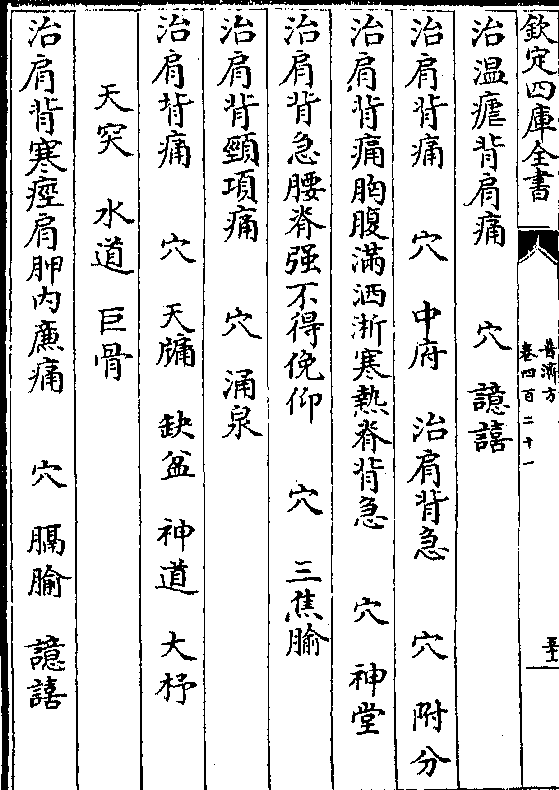 欽定四庫全書
普濟方
卷四百二十一
治溫瘧背肩痛 穴 譩譆
治肩背痛 穴 中府 治肩背急 穴 附分
治肩背痛胸腹滿洒淅寒熱脊背急 穴 神堂
治肩背急腰脊强不得俛仰 穴 三焦腧
治肩背頸項痛 穴 涌泉
治肩背痛 穴 天牖 缺盆 神道 大杼
天突 水道 巨骨
治肩背寒痙肩胛内亷痛 穴 膈腧 譩譆